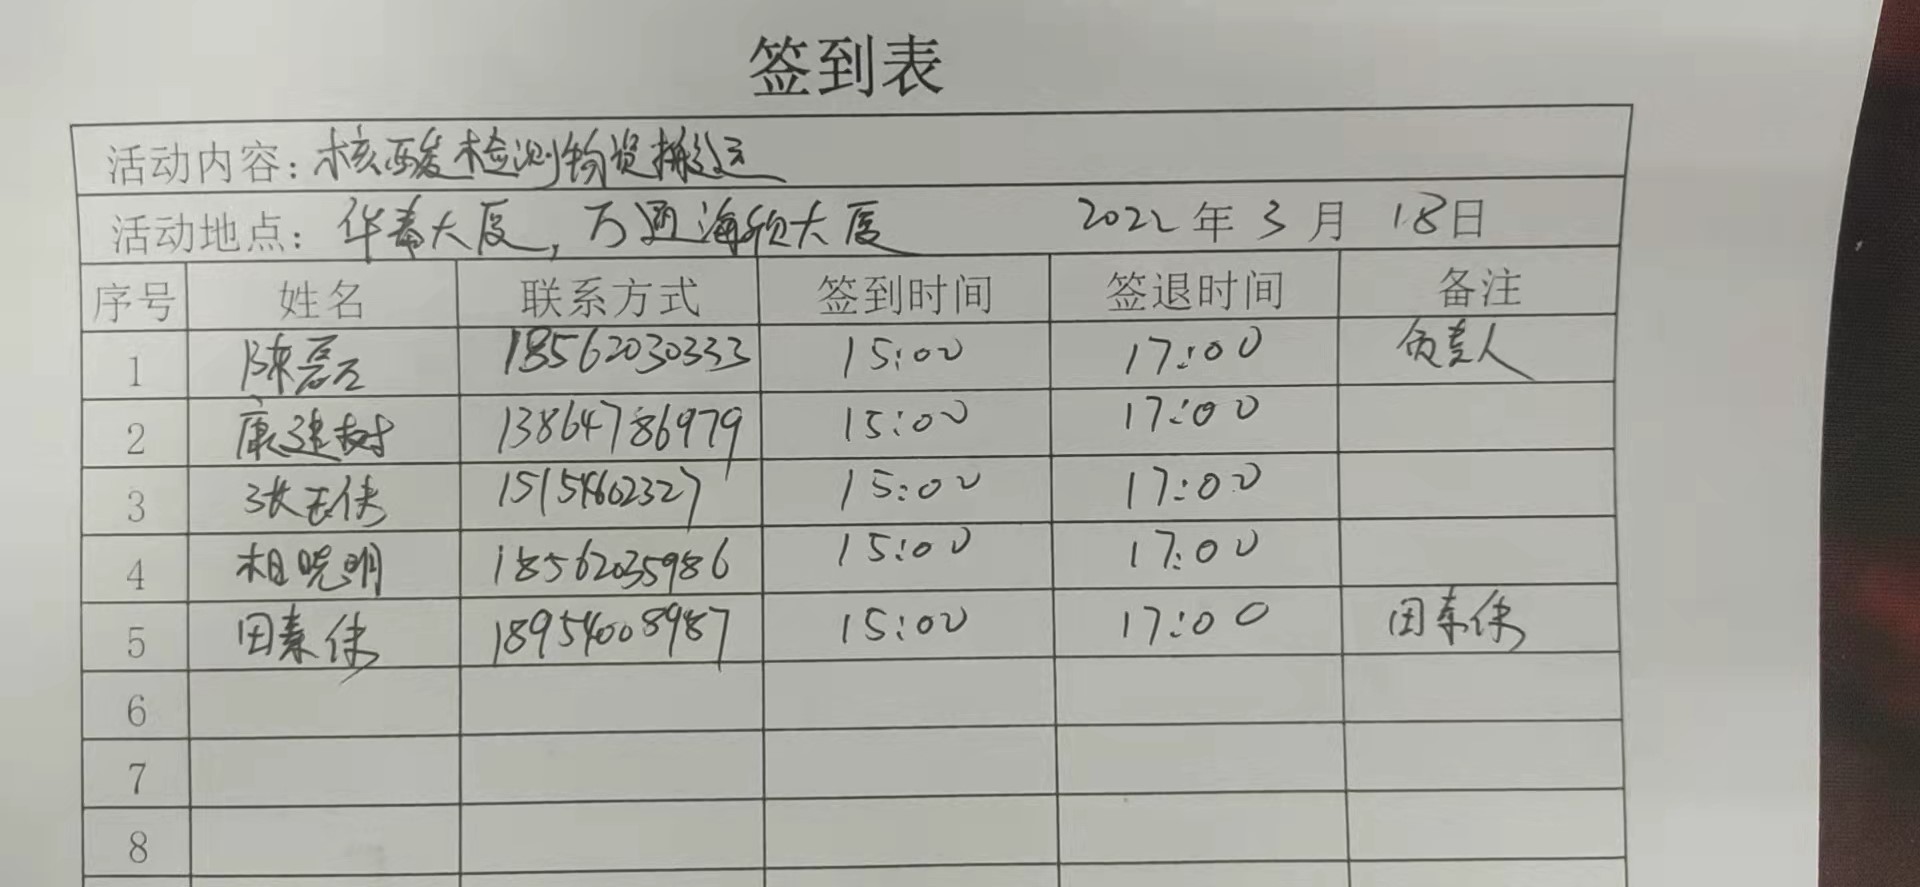 签到表
活动内容：核酸检测物资搬运
活动地点：华春大厦，万通海欣大厦 2022年3月18日
序号 姓名 联系方式 签到时间 签退时间 备注
1 陈磊 18562030333 15:00 17:00 负责人
2 康建树 13864786979 15:00 17:00
3 张玉侠 15154602327 15:00 17:00
4 相晓明 18562035986 15:00 17:00
5 田素侠 18954008987 15:00 17:00 田素侠
6
7
8